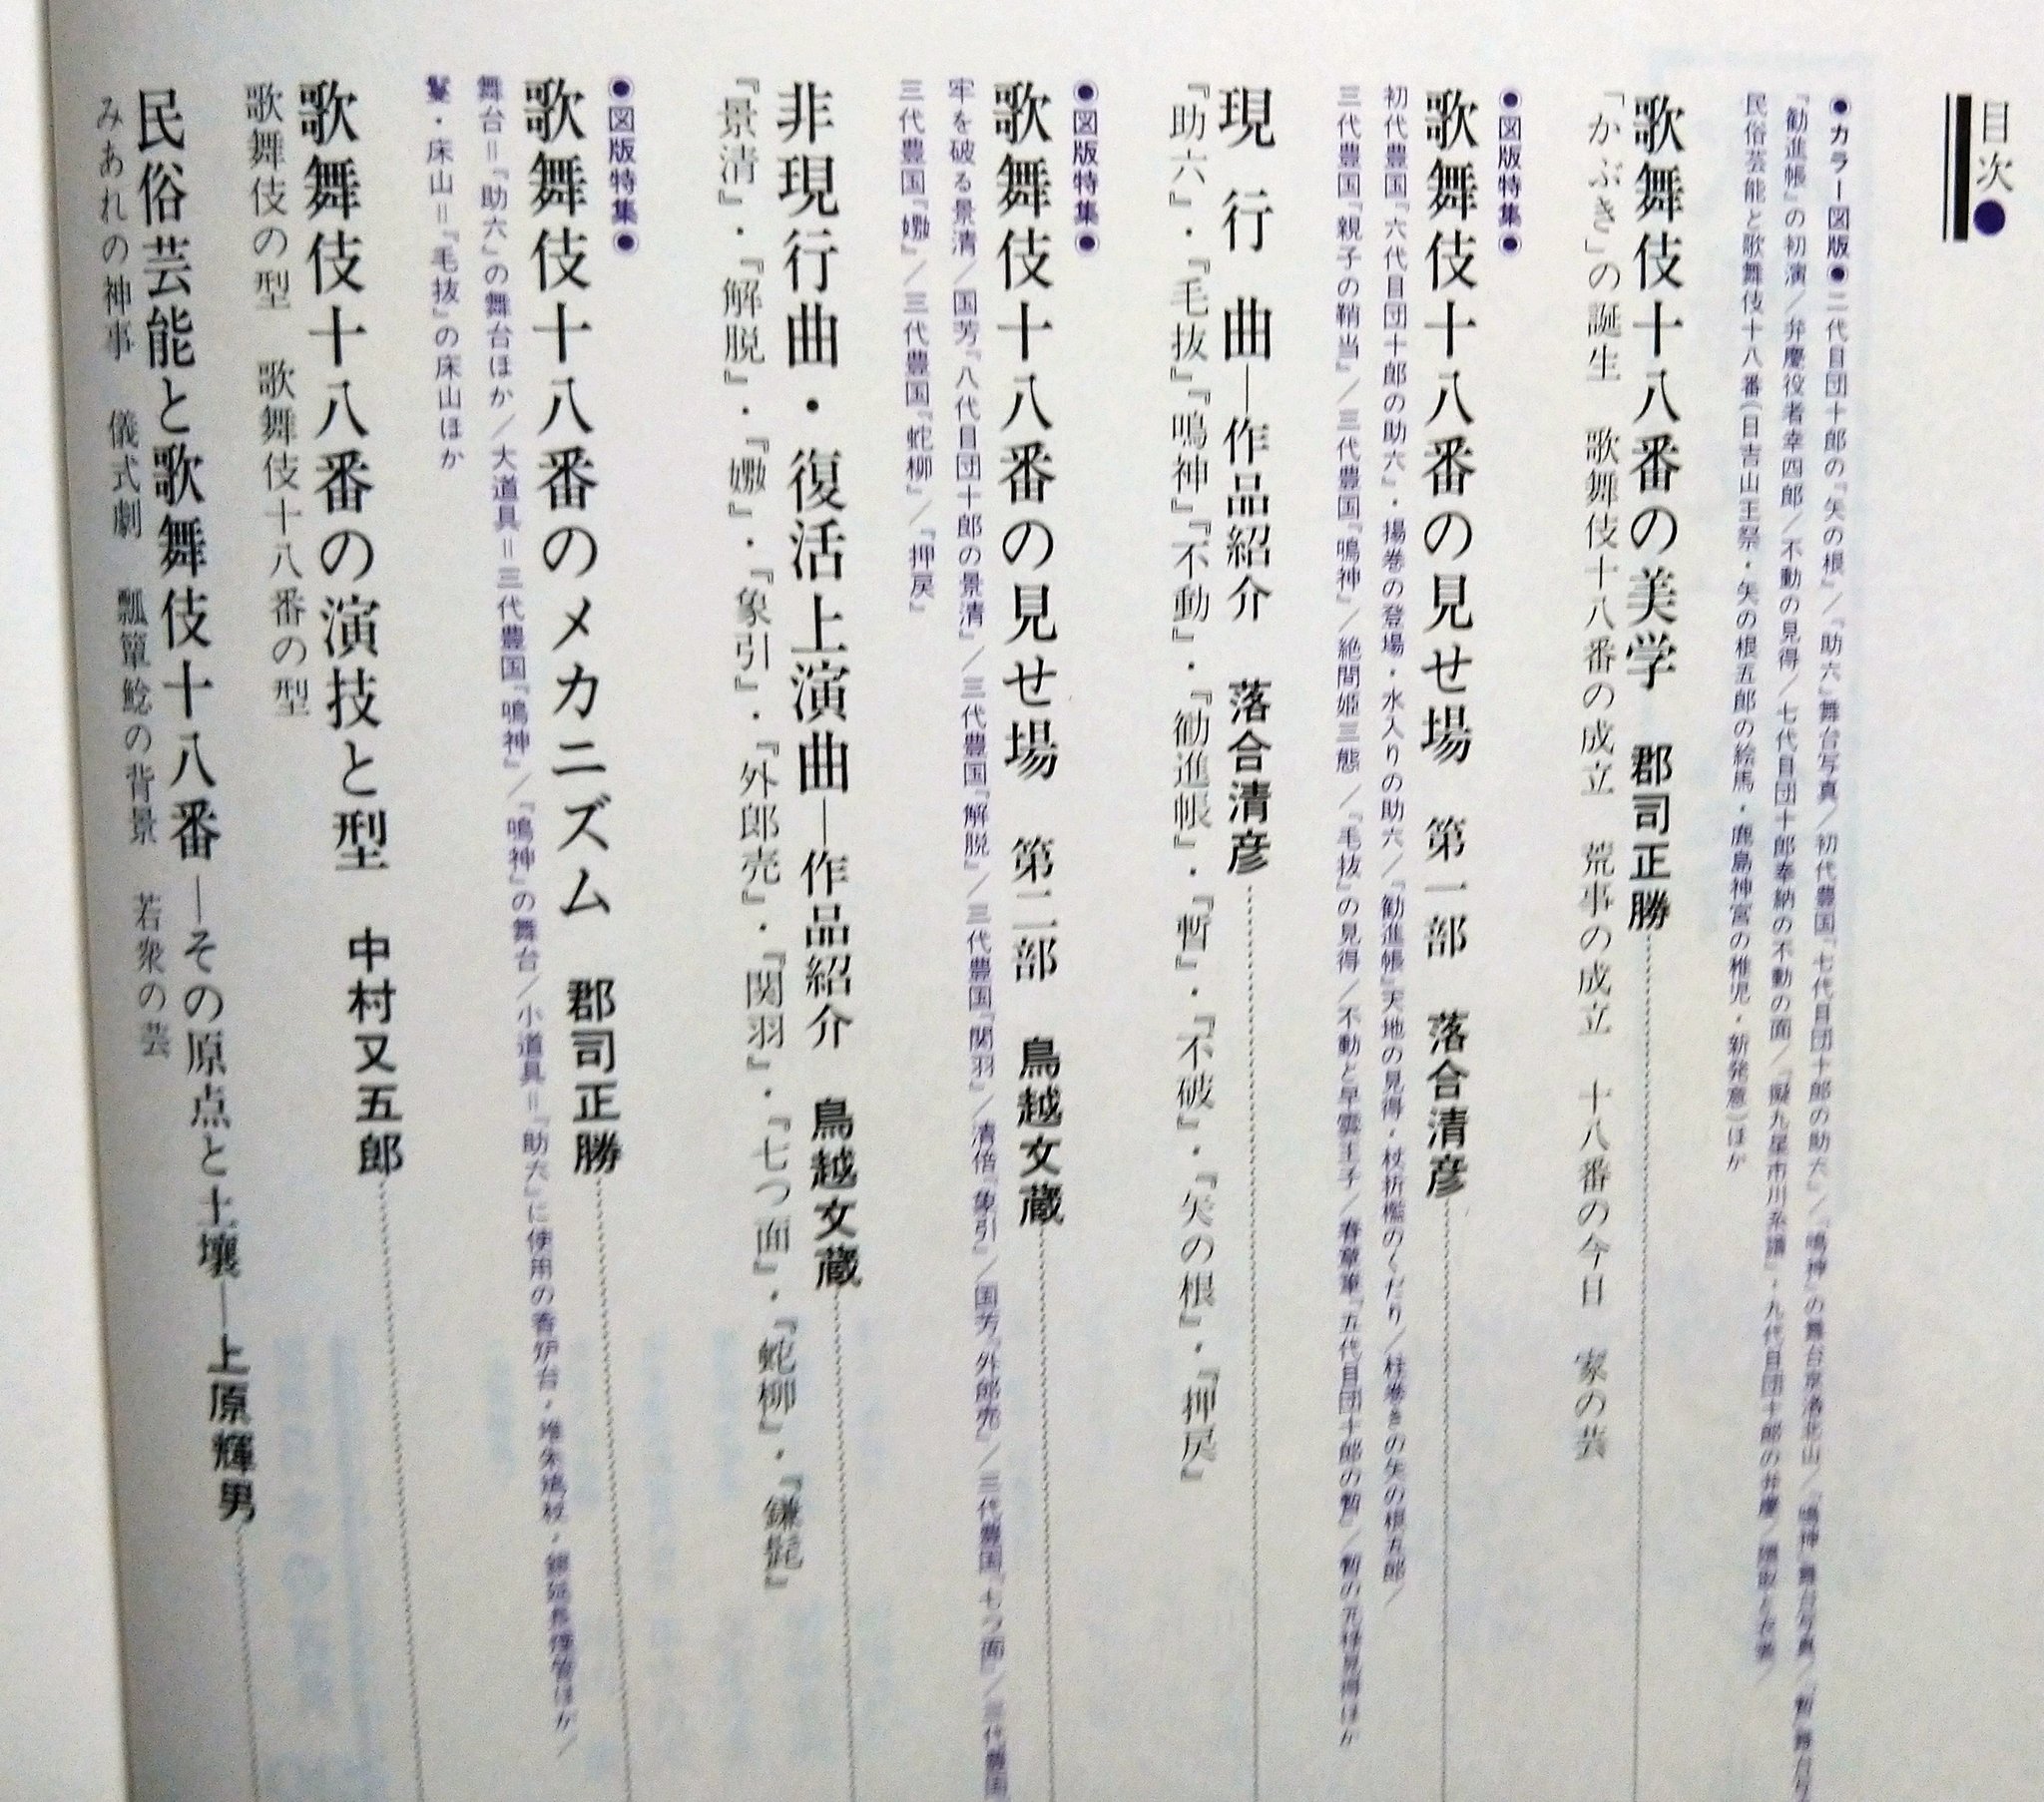 目次●
●カラー図版●二代目団十郎の『矢の根』／『助六』舞台写真／初代豊国『七代目団十郎の助六』／『鳴神』の舞台
『勧進帳』の初演／弁慶役者幸四郎／不動の見得／七代目団十郎奉納の不動の面／『擬九星市川系譜』・九代目団十郎の弁慶／隈取と衣裳／
民俗芸能と歌舞伎十八番（日吉山王祭・矢の根五郎の絵馬・鹿島神宮の稚児・新発意）ほか
歌舞伎十八番の美学　郡司正勝
「かぶき」の誕生　歌舞伎十八番の成立　荒事の成立　十八番の今日　家の芸
●図版特集●
歌舞伎十八番の見せ場　第一部　落合清彦
初代豊国『六代目団十郎の助六』・揚巻の登場・水入りの助六／『勧進帳』天地の見得・杖折檻のくだり／柱巻きの矢の根五郎／
三代豊国『親子の鞘当』／三代豊国『鳴神』／絶間姫三態／『毛抜』の見得／不動と早雲王子／春章筆『五代目団十郎の暫』／暫の元禄見得ほか
現行曲―作品紹介　落合清彦
『助六』・『毛抜』『鳴神』『不動』・『勧進帳』・『暫』・『不破』・『矢の根』・『押戻』
●図版特集●
歌舞伎十八番の見せ場　第二部　鳥越文蔵
牢を破る景清／国芳『八代目団十郎の景清』／三代豊国『解脱』／三代豊国『関羽』／清倍『象引』／国芳『外郎売』／三代豊国『七つ面』／三代豊国
三代豊国『嫐』／三代豊国『蛇柳』／『押戻』
非現行曲・復活上演曲―作品紹介　鳥越文蔵
『景清』・『解脱』・『嫐』・『象引』・『外郎売』・『関羽』・『七つ面』・『蛇柳』・『鎌髭』
●図版特集●
歌舞伎十八番のメカニズム　郡司正勝
舞台＝『助六』の舞台ほか／大道具＝三代豊国『鳴神』／『鳴神』の舞台／小道具＝『助六』に使用の香炉台・堆朱鳩杖・銀延長煙管ほか／
鬘・床山＝『毛抜』の床山ほか
歌舞伎十八番の演技と型　中村又五郎
歌舞伎の型　歌舞伎十八番の型
民俗芸能と歌舞伎十八番―その原点と土壌―上原輝男
みあれの神事　儀式劇　瓢簞鯰の背景　若衆の芸